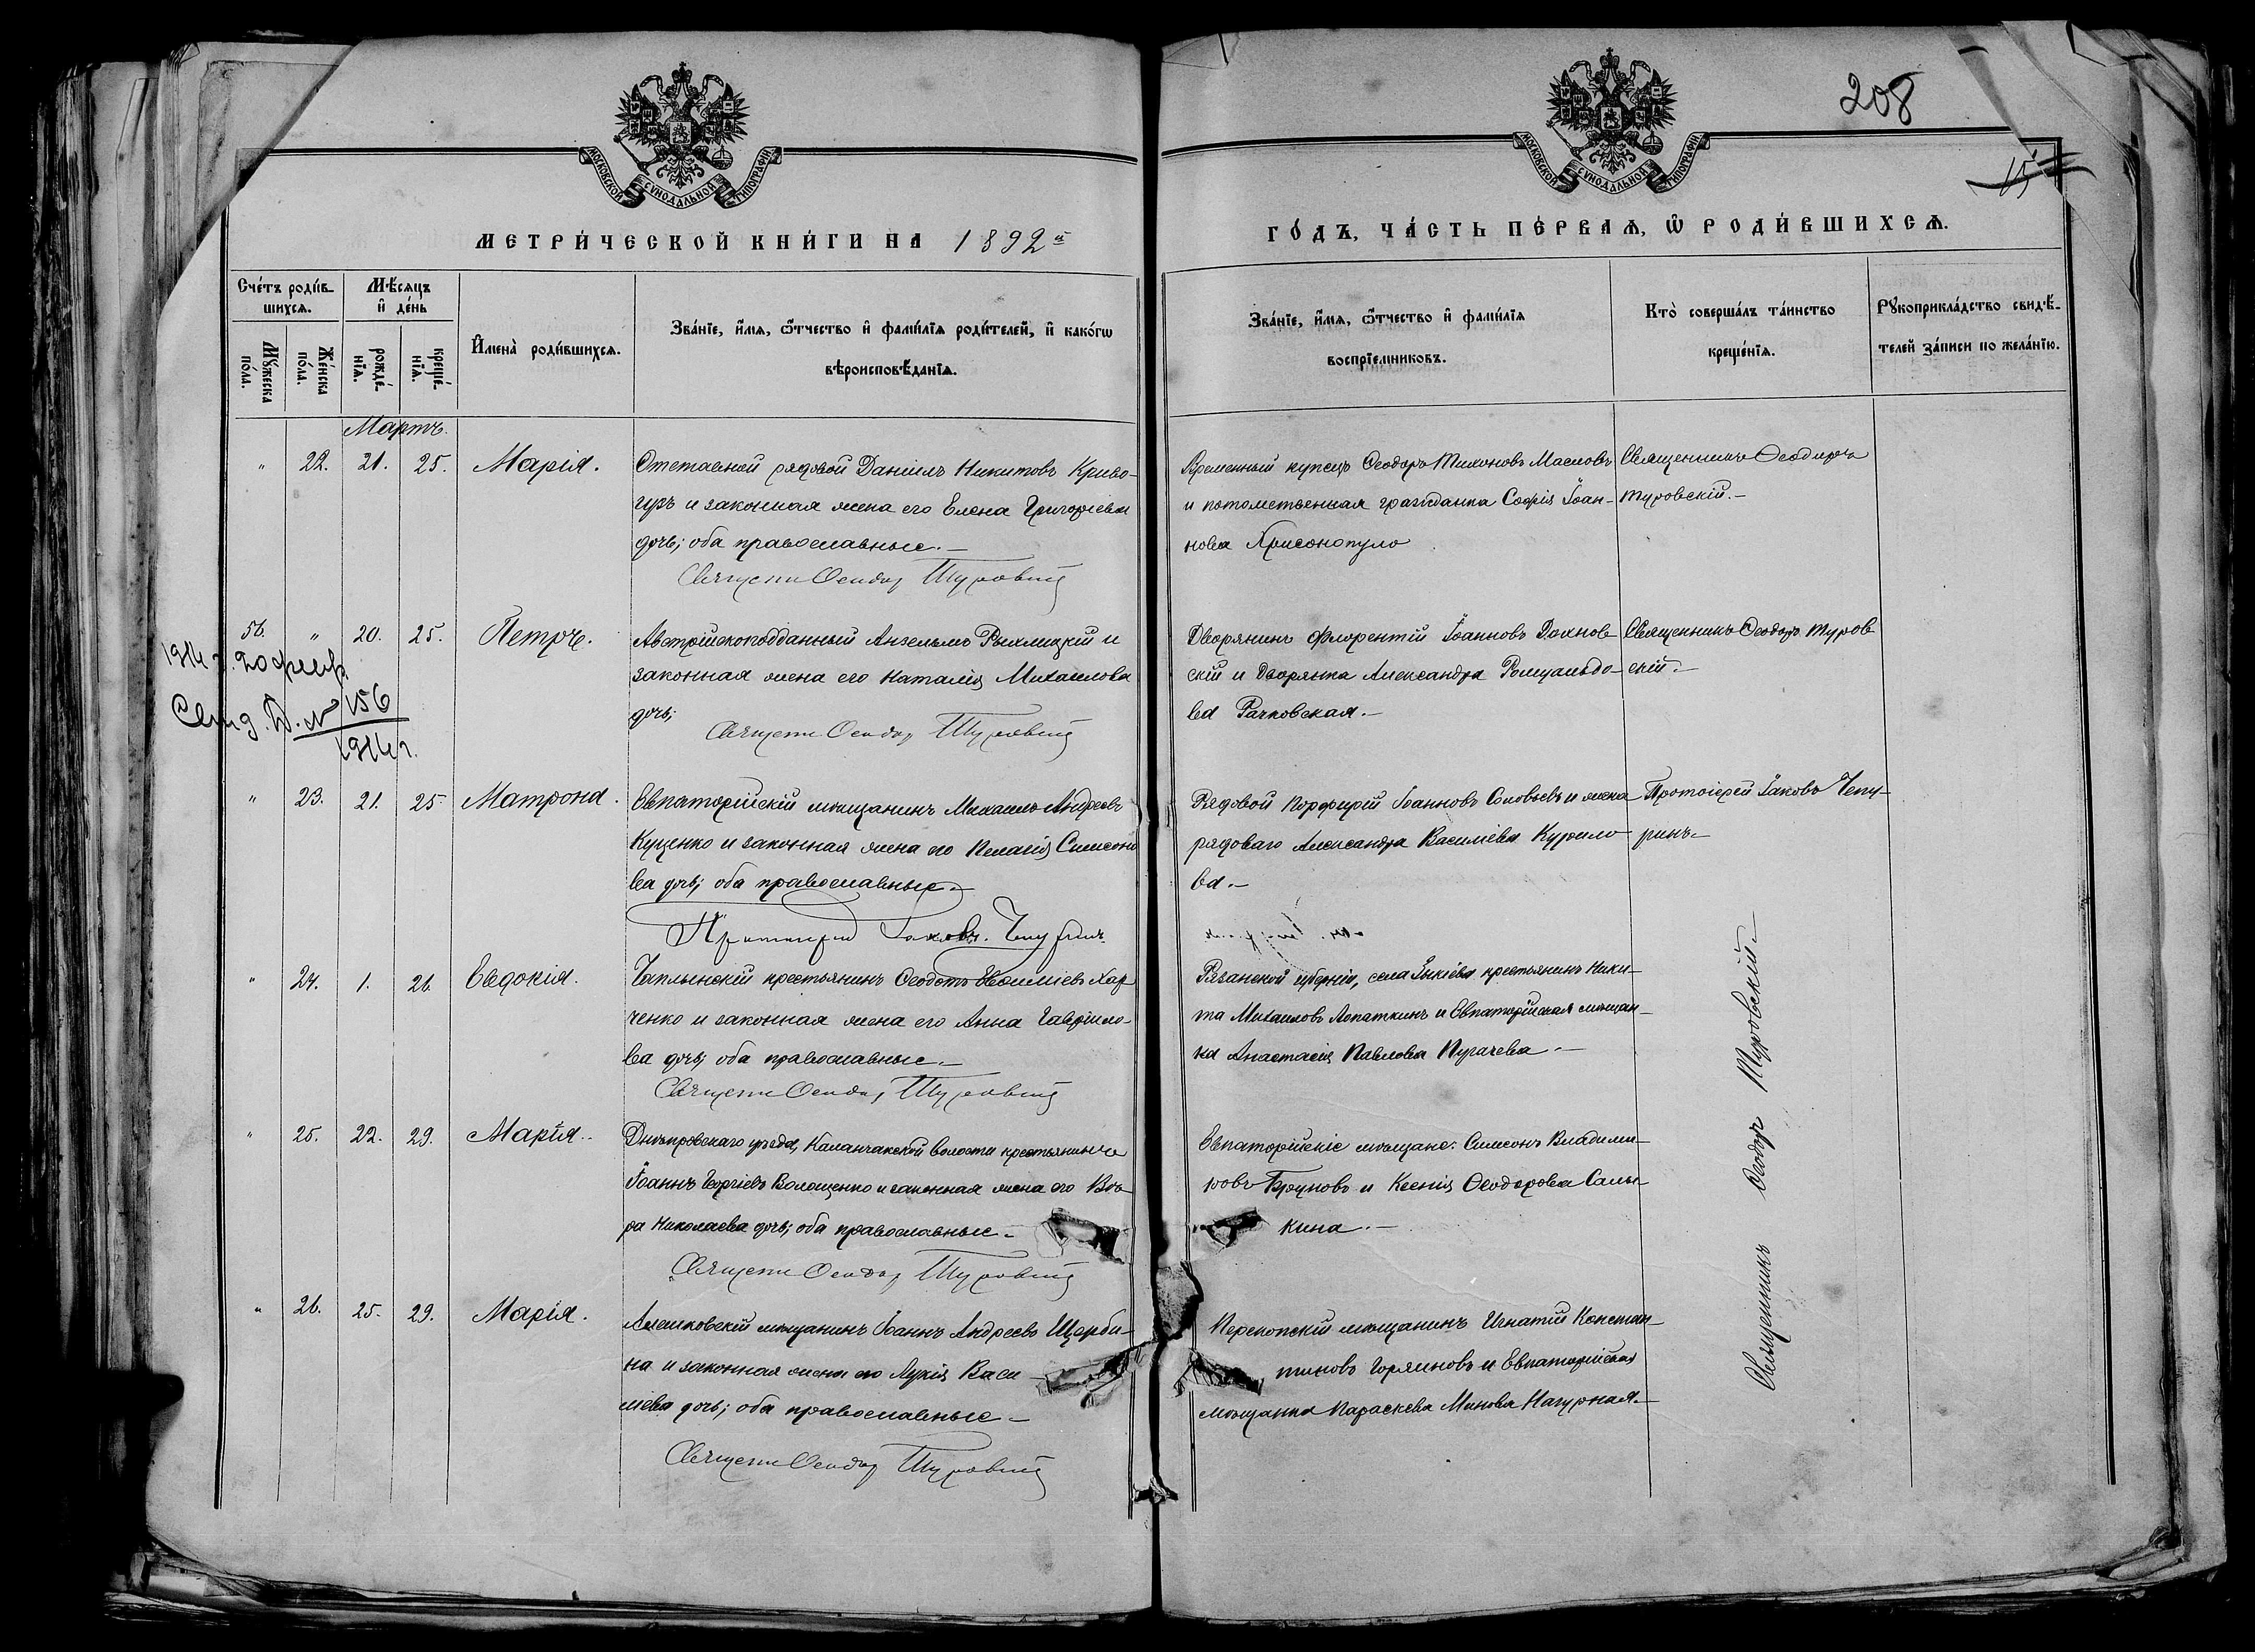 208
15
МОСКОВСКОЙ СѴНОДАЛЬНОЙ ТИПОГРАФІИ
МОСКОВСКОЙ СѴНОДАЛЬНОЙ ТИПОГРАФІИ
МЕТРИ́ЧЕСКОЙ КНИ́ГИ НА 1892й
ГО́ДЪ, ЧА́СТЬ ПЕ́РВАѦ, Ѿ РОДИ́ВШИХСѦ.
Сче́тъ роди́в-
шихсѧ.
Мꙋ́жеска по́ла.
Же́нска по́ла.
Мѣ́сѧцъ и де́нь
рожде́-
нїѧ.
креще́-
нїѧ.
Имена̀ роди́вшихсѧ.
Зва́нїе, и́мѧ, ѻ҆́тчество и фами́лїѧ роди́телей, и како́гѡ
вѣроисповѣ́данїѧ.
Зва́нїе, и́мѧ, ѻ҆́тчество и фами́лїѧ
воспрїемниковъ.
Кто̀ соверша́лъ та́инство
креще́нїѧ.
Рꙋкоприкла́дство свидѣ́-
телей за́писи по жела́нїю.
Мартъ.
" 22. 21. 25. Марія.
Отставной рядовой Даніилъ Никитовъ Криво-
гузъ и законная жена его Елена Григоріева
дочь; оба православные.
Священ Феодор Туровскій
Временный купецъ Феодоръ Тихоновъ Масловъ
и потомственная гражданка Софія Іоан-
нова Хрисонопуло
Священникъ Феодоръ
Туровскій.
56. " 20. 25. Петръ.
1914 г. 20 февр.
Свид. № 156
1914 г.
Австрійскоподданный Ансельмъ Рыхлицкій и
законная жена его Наталія Михаилова
дочь;
Священ Феодор Туровскій
Дворянинъ Флорентій Іоанновъ Дахнов-
скій и Дворянка Александра Ромуальдо-
ва Рачковская.
Священникъ Феодоръ Туров
скій.
" 23. 21. 25. Матрона.
Евпаторійскій мѣщанинъ Михаилъ Андреевъ
Куценко и законная жена его Пелагія Симеоно
ва дочь; оба православные.
Протоіерей Іаковъ Чепуринъ
Рядовой Порфирій Іоанновъ Соловьевъ и жена
рядоваго Александра Василіева Курило-
ва.
Протоіерей Іаковъ Чепу-
ринъ.
" 24. 1. 26. Евдокія.
Чаплынскій крестьянинъ Феодотъ Евфиміевъ Хар
ченко и законная жена его Анна Гавріило-
ва дочь; оба православные.
Священ Феодор Туровскій
Рязанской губерніи, села крестьянинъ Ники-
та Михаиловъ Лопаткинъ и Евпаторійская мѣщан-
ка Анастасія Павлова Пугачева.
" 25. 22. 29. Марія.
Днѣпровскаго уѣзда, Каланчакской волости крестьянинъ
Іоаннъ Георгіевъ Волощенко и законная жена его Вѣ-
ра Николаева дочь; оба православные.
Священ Феодор Туровскій
Евпаторійскіе мѣщане: Симеонъ Владими-
ровъ Бруновъ и Ксенія Феодорова Салы-
кина.
" 26. 25. 29. Марія.
Алешковскій мѣщанинъ Іоаннъ Андреевъ Щерби-
на и законная жена его Лукія Васи-
ліева дочь; оба православные.
Священ Феодор Туровскій
Перекопскій мѣщанинъ Игнатій Констан-
тиновъ Горяиновъ и Евпаторійская
мѣщанка Параскева Минова Нагурная.
Священникъ Феодоръ Туровскій.